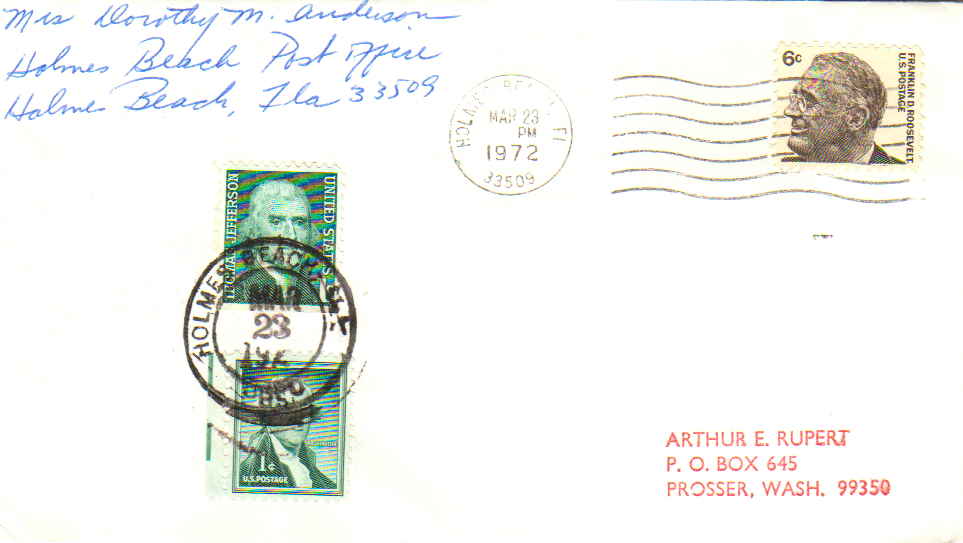 Mrs Dorothy M. Anderson
Holmes Beach Post Office
Holmes Beach, Fla 33509
HOLMES BEACH, FL
MAR 23
PM
1972
33509
6c
FRANKLIN D. ROOSEVELT
U.S. POSTAGE
THOMAS JEFFERSON
UNITED STATES
HOLMES BEACH, FLA.
MAR
23
1c
U.S. POSTAGE
ARTHUR E. RUPERT
P. O. BOX 645
PROSSER, WASH. 99350